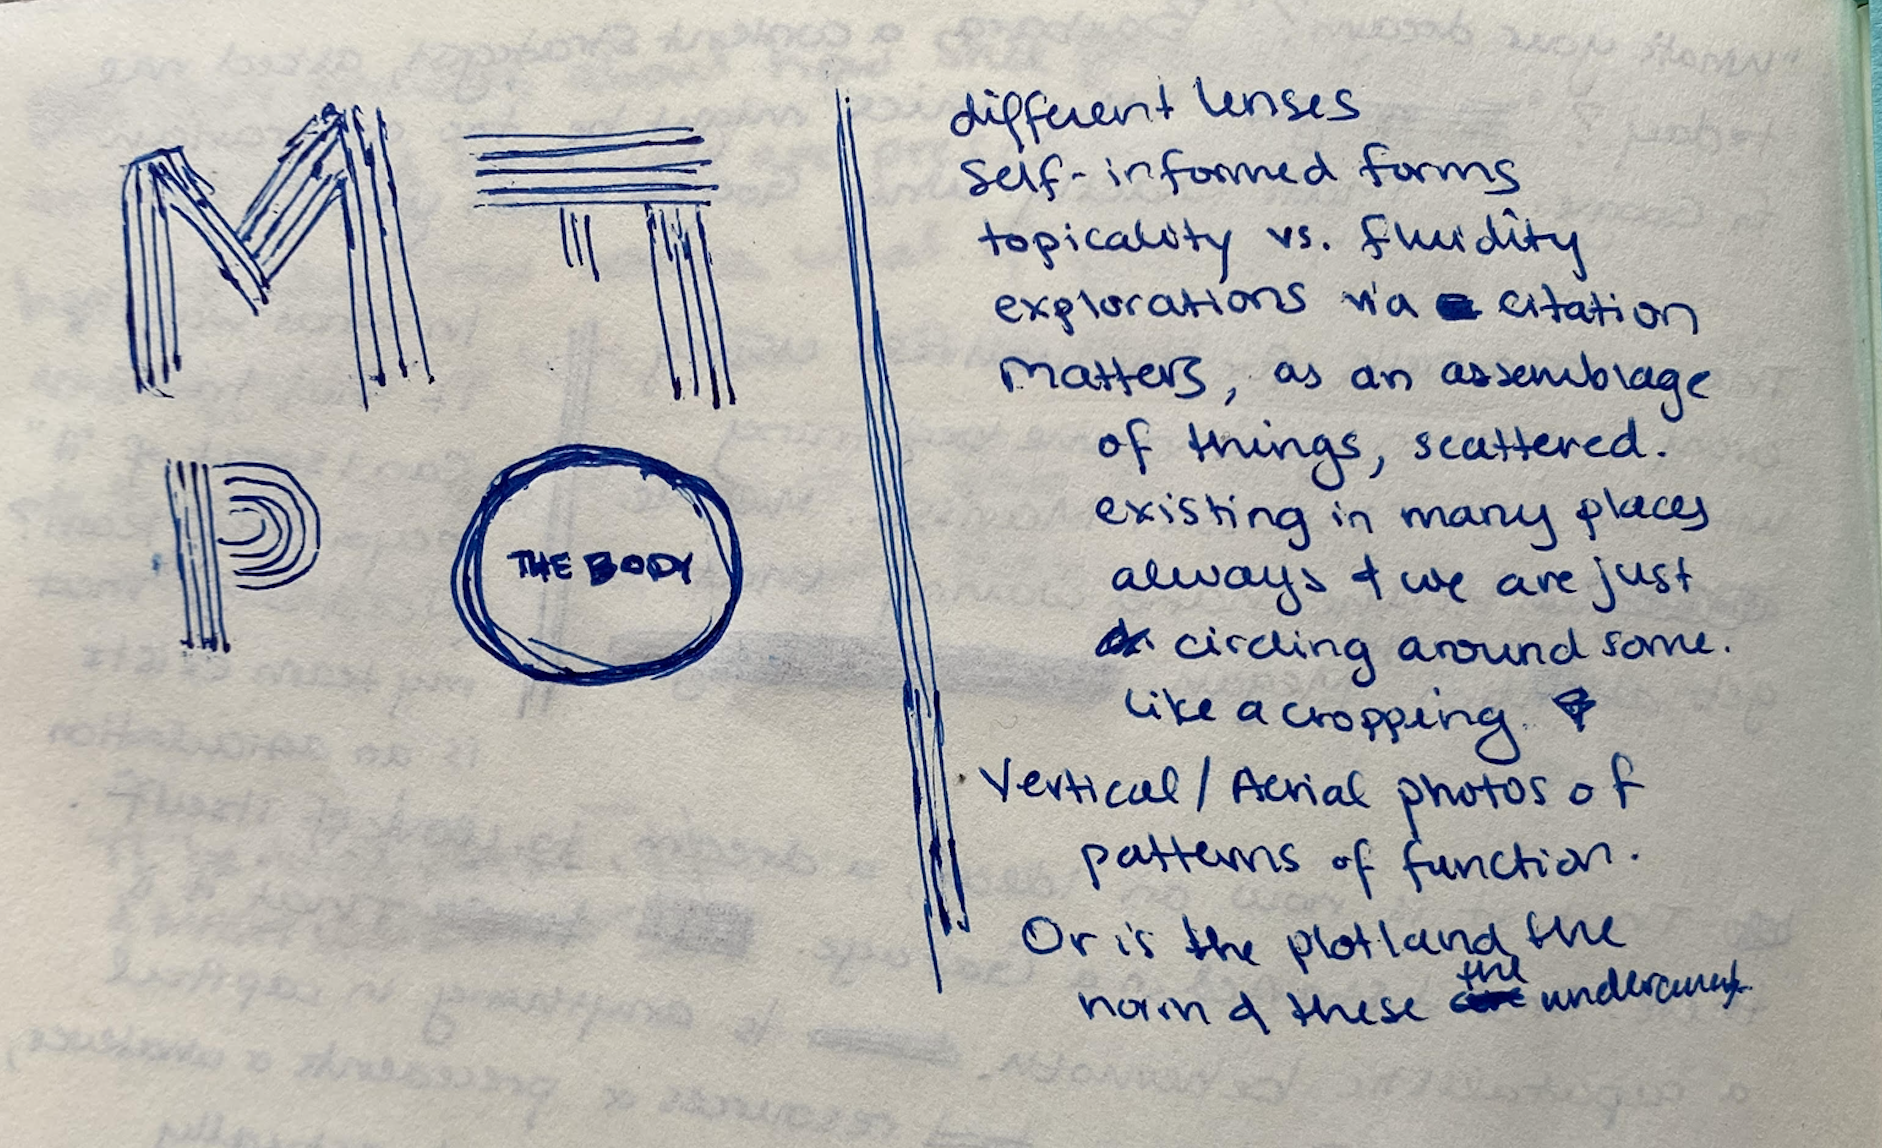 M T
P THE BODY
different lenses
self-informed forms
topicality vs. fluidity
explorations via citation
matters, as an assemblage
of things, scattered.
existing in many places
always & we are just
circling around some.
like a cropping.
Vertical / Aerial photos of
patterns of function.
Or is the plotland the
norm & these the undercurrent